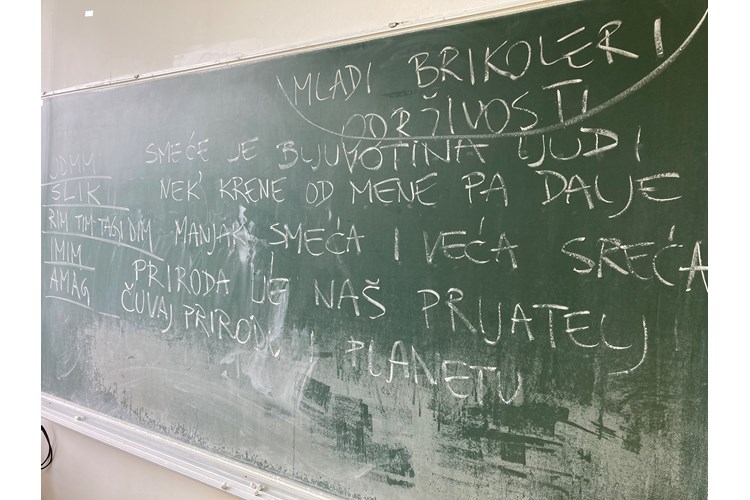 MLADI BRIKOLERI
ODRŽIVOSTI
UDMM SMEĆE JE BLJUVOTINA LJUDI
SLIK NEK' KRENE OD MENE PA DALJE
RIM TIM-TAGI DIM MANJAK SMEĆA I VEĆA SREĆA
IMIM PRIRODA JE NAŠ PRIJATELJ
AMAG ČUVAJ PRIRODU I PLANETU